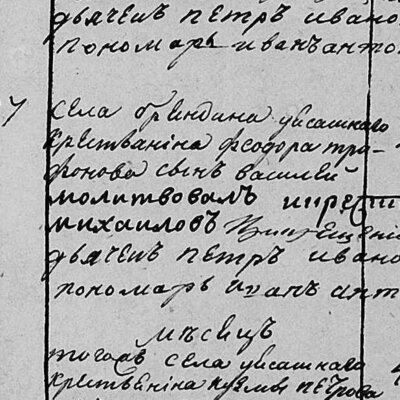 дьячекъ петръ ивано
пономарь иванъ анто
7 села бриндина уясашнаго
крестьянина феодора тро-
фонова сынъ василей
молитвовалъ и крести
михаиловъ
дьячекъ петръ ивано
пономарь иванъ ант
мѣсяцъ
тогожъ села уясашнаго
крестьянина кузмы петрова